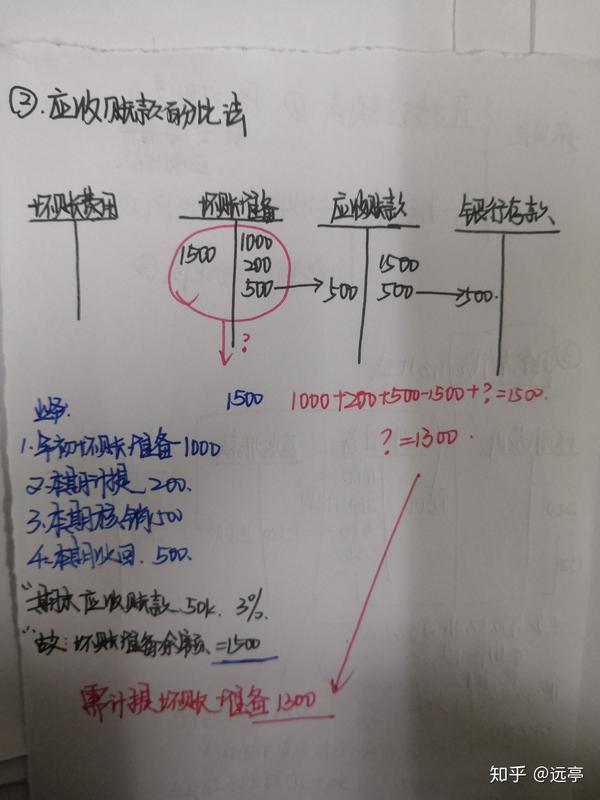 ③.应收账款百分比法
坏账费用 坏账准备 应收账款 银行存款
1500 1000
200
500 500 1500
500 500.
?
1500 1000+200+500-1500+?=1500.
?=1300.
业务:
1.年初坏账准备1000
2.本期计提 200.
3.本期核销1500
4.本期收回. 500.
"期末应收账款 50k. 3%.
"故:坏账准备余额=1500
需计提坏账准备1300
知乎 @远亭